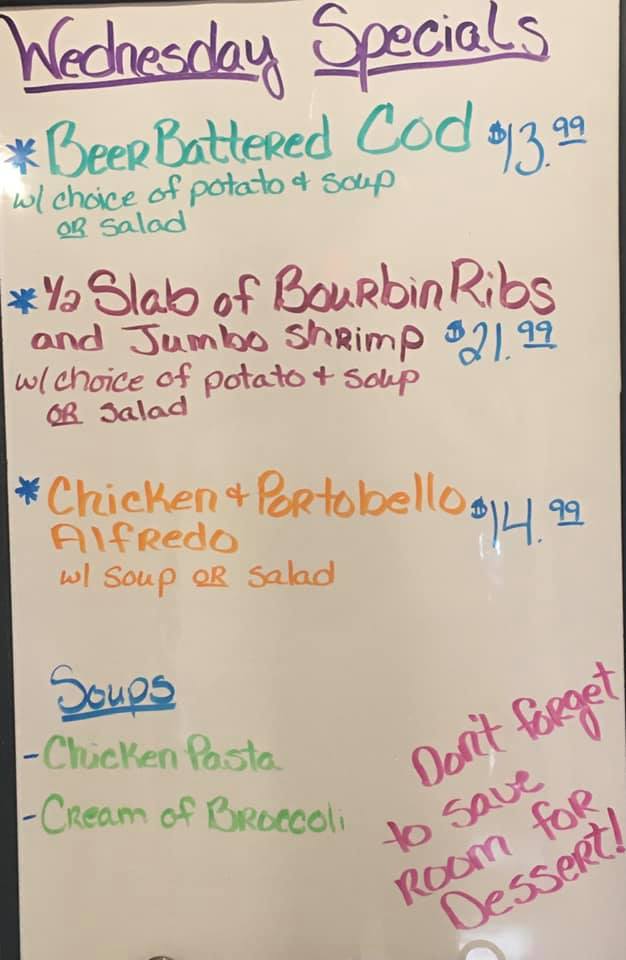 Wednesday Specials
* Beer Battered Cod $13.99
w/ choice of potato + soup
OR salad
* 1/2 Slab of Bourbin Ribs
and Jumbo Shrimp $21.99
w/ choice of potato + soup
OR salad
* Chicken + Portobello $14.99
Alfredo
w/ soup OR salad
Soups
- Chicken Pasta
- Cream of Broccoli
Don't forget
to save
room for
Dessert!